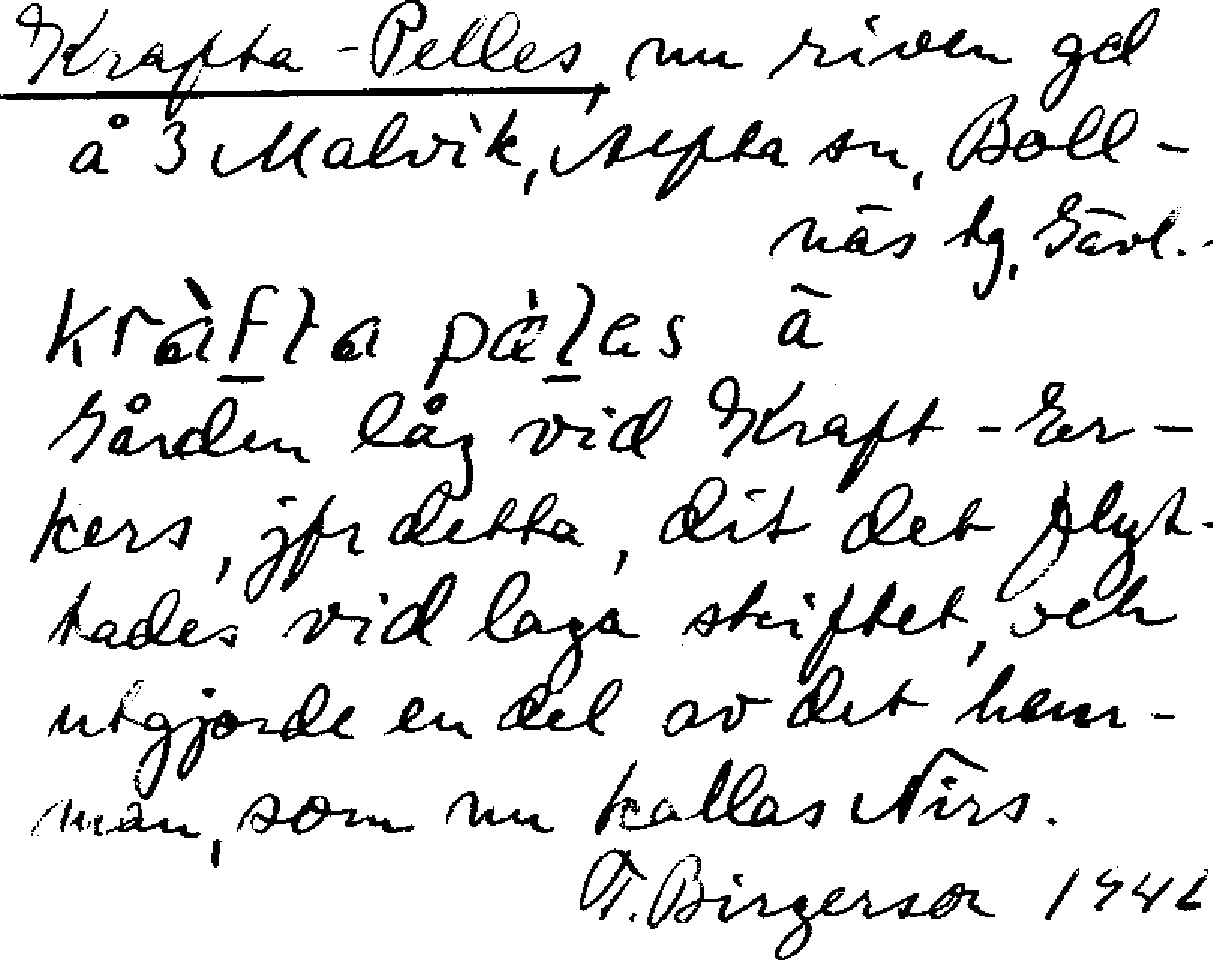 Krafta-Pelles, nu riven gd
å 3 Malvik, Alfta sn, Boll-
näs tg, Gävl.
kràfta pàlas ā
Gården låg vid Kraft-Er-
kers, jfr detta, dit det flyt-
tades vid laga skiftet, och
utgjorde en del av det hem-
man, som nu kallas Nirs.
F. Birgerson 1942